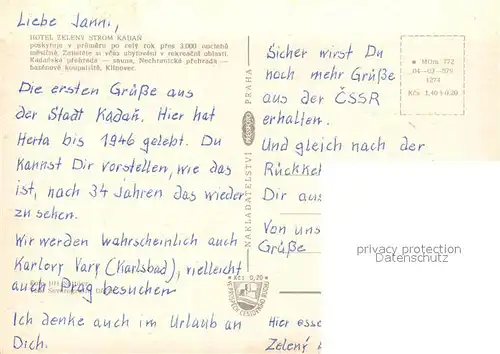 Liebe Janni,
HOTEL ZELENÝ STROM KADAŇ
poskytuje v průměru po celý rok přes 3.000 noclehů
měsíčně. Zajistěte si včas ubytování v rekreační oblasti.
Kadaňská přehrada — sauna, Nechranická přehrada —
bazénové koupaliště, Klínovec.
Die ersten Grüße aus
der Stadt Kadaň. Hier hat
Herta bis 1946 gelebt. Du
kannst Dir vorstellen, wie das
ist, nach 34 Jahren das wieder
zu sehen.
Wir werden wahrscheinlich auch
Karlovy Vary (Karlsbad), vielleicht
auch Prag besuchen
Ich denke auch im Urlaub an
Dich.
NAKLADATELSTVÍ
PRAHA
Kčs 0,20
Sicher wirst Du
noch mehr Grüße
aus der ČSSR
erhalten.
Und gleich nach der
Rückke
Dir aus
Von uns
Grüße
Hier esse
Zelený
MOm 772
04-03-979
1274
Kčs 1,40+0,20
privacy protection
Datenschutz